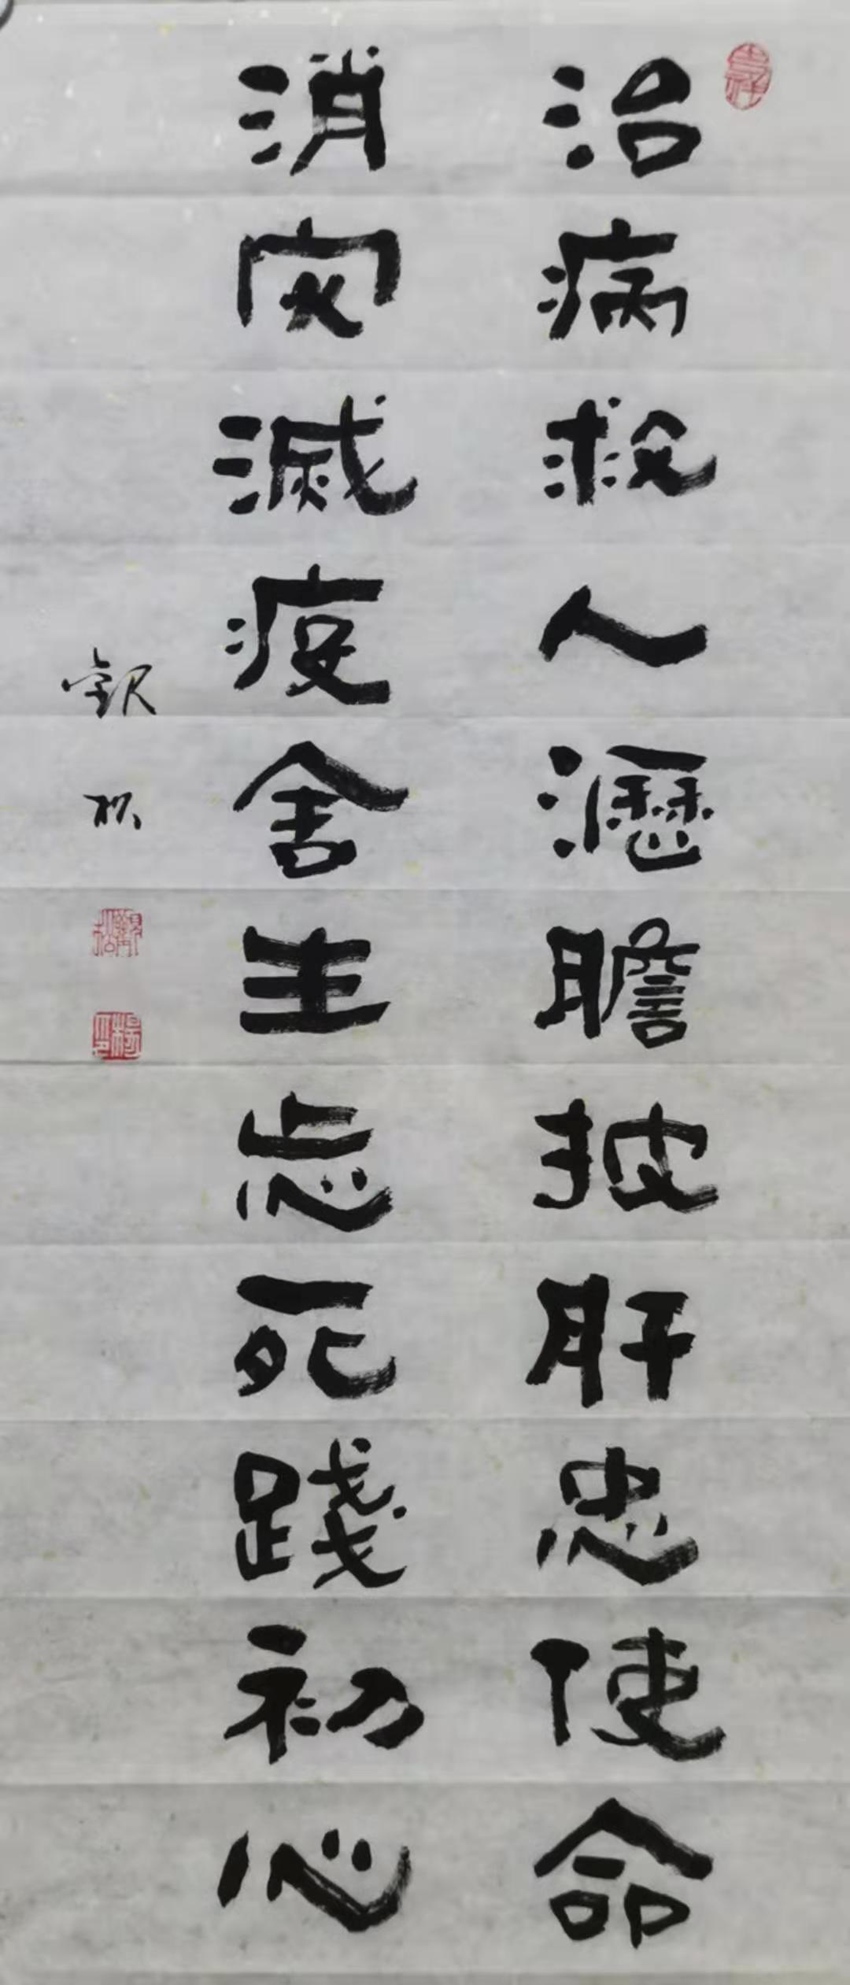 治病救人瀝膽披肝忠使命
消灾滅疫舍生忘死踐初心
觀松